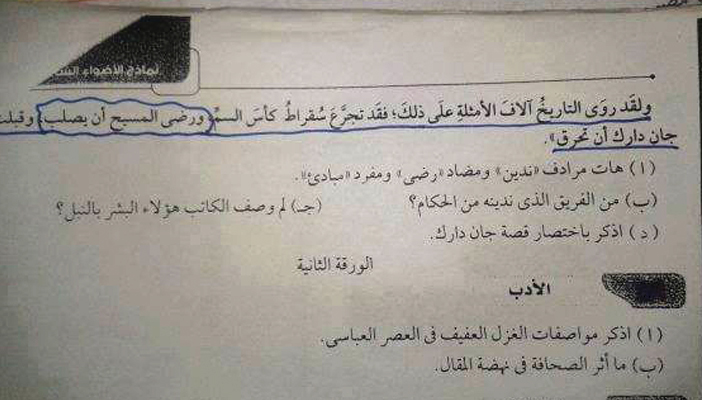 نماذج الأضواء
ولقد روَى التاريخُ آلافَ الأمثلةِ علَى ذلكَ؛ فقَد تجرَّعَ سُقراطُ كأسَ السمِّ، ورضى المسيح أن يصلب، وقبلت
جان دارك أن تحرق».
(١) هات مرادف «ندين» ومضاد «رضى» ومفرد «مبادئ».
(ب) من الفريق الذى ندينه من الحكام؟ (جـ) لم وصف الكاتب هؤلاء البشر بالنبل؟
(د) اذكر باختصار قصة جان دارك.
الورقة الثانية
الأدب
(١) اذكر مواصفات الغزل العفيف فى العصر العباسى.
(ب) ما أثر الصحافة فى نهضة المقال.